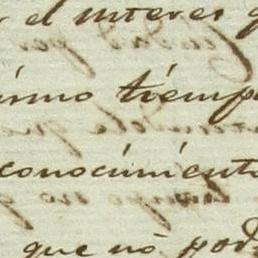 el interes
ismo tiempo
conocimiento
que no pod